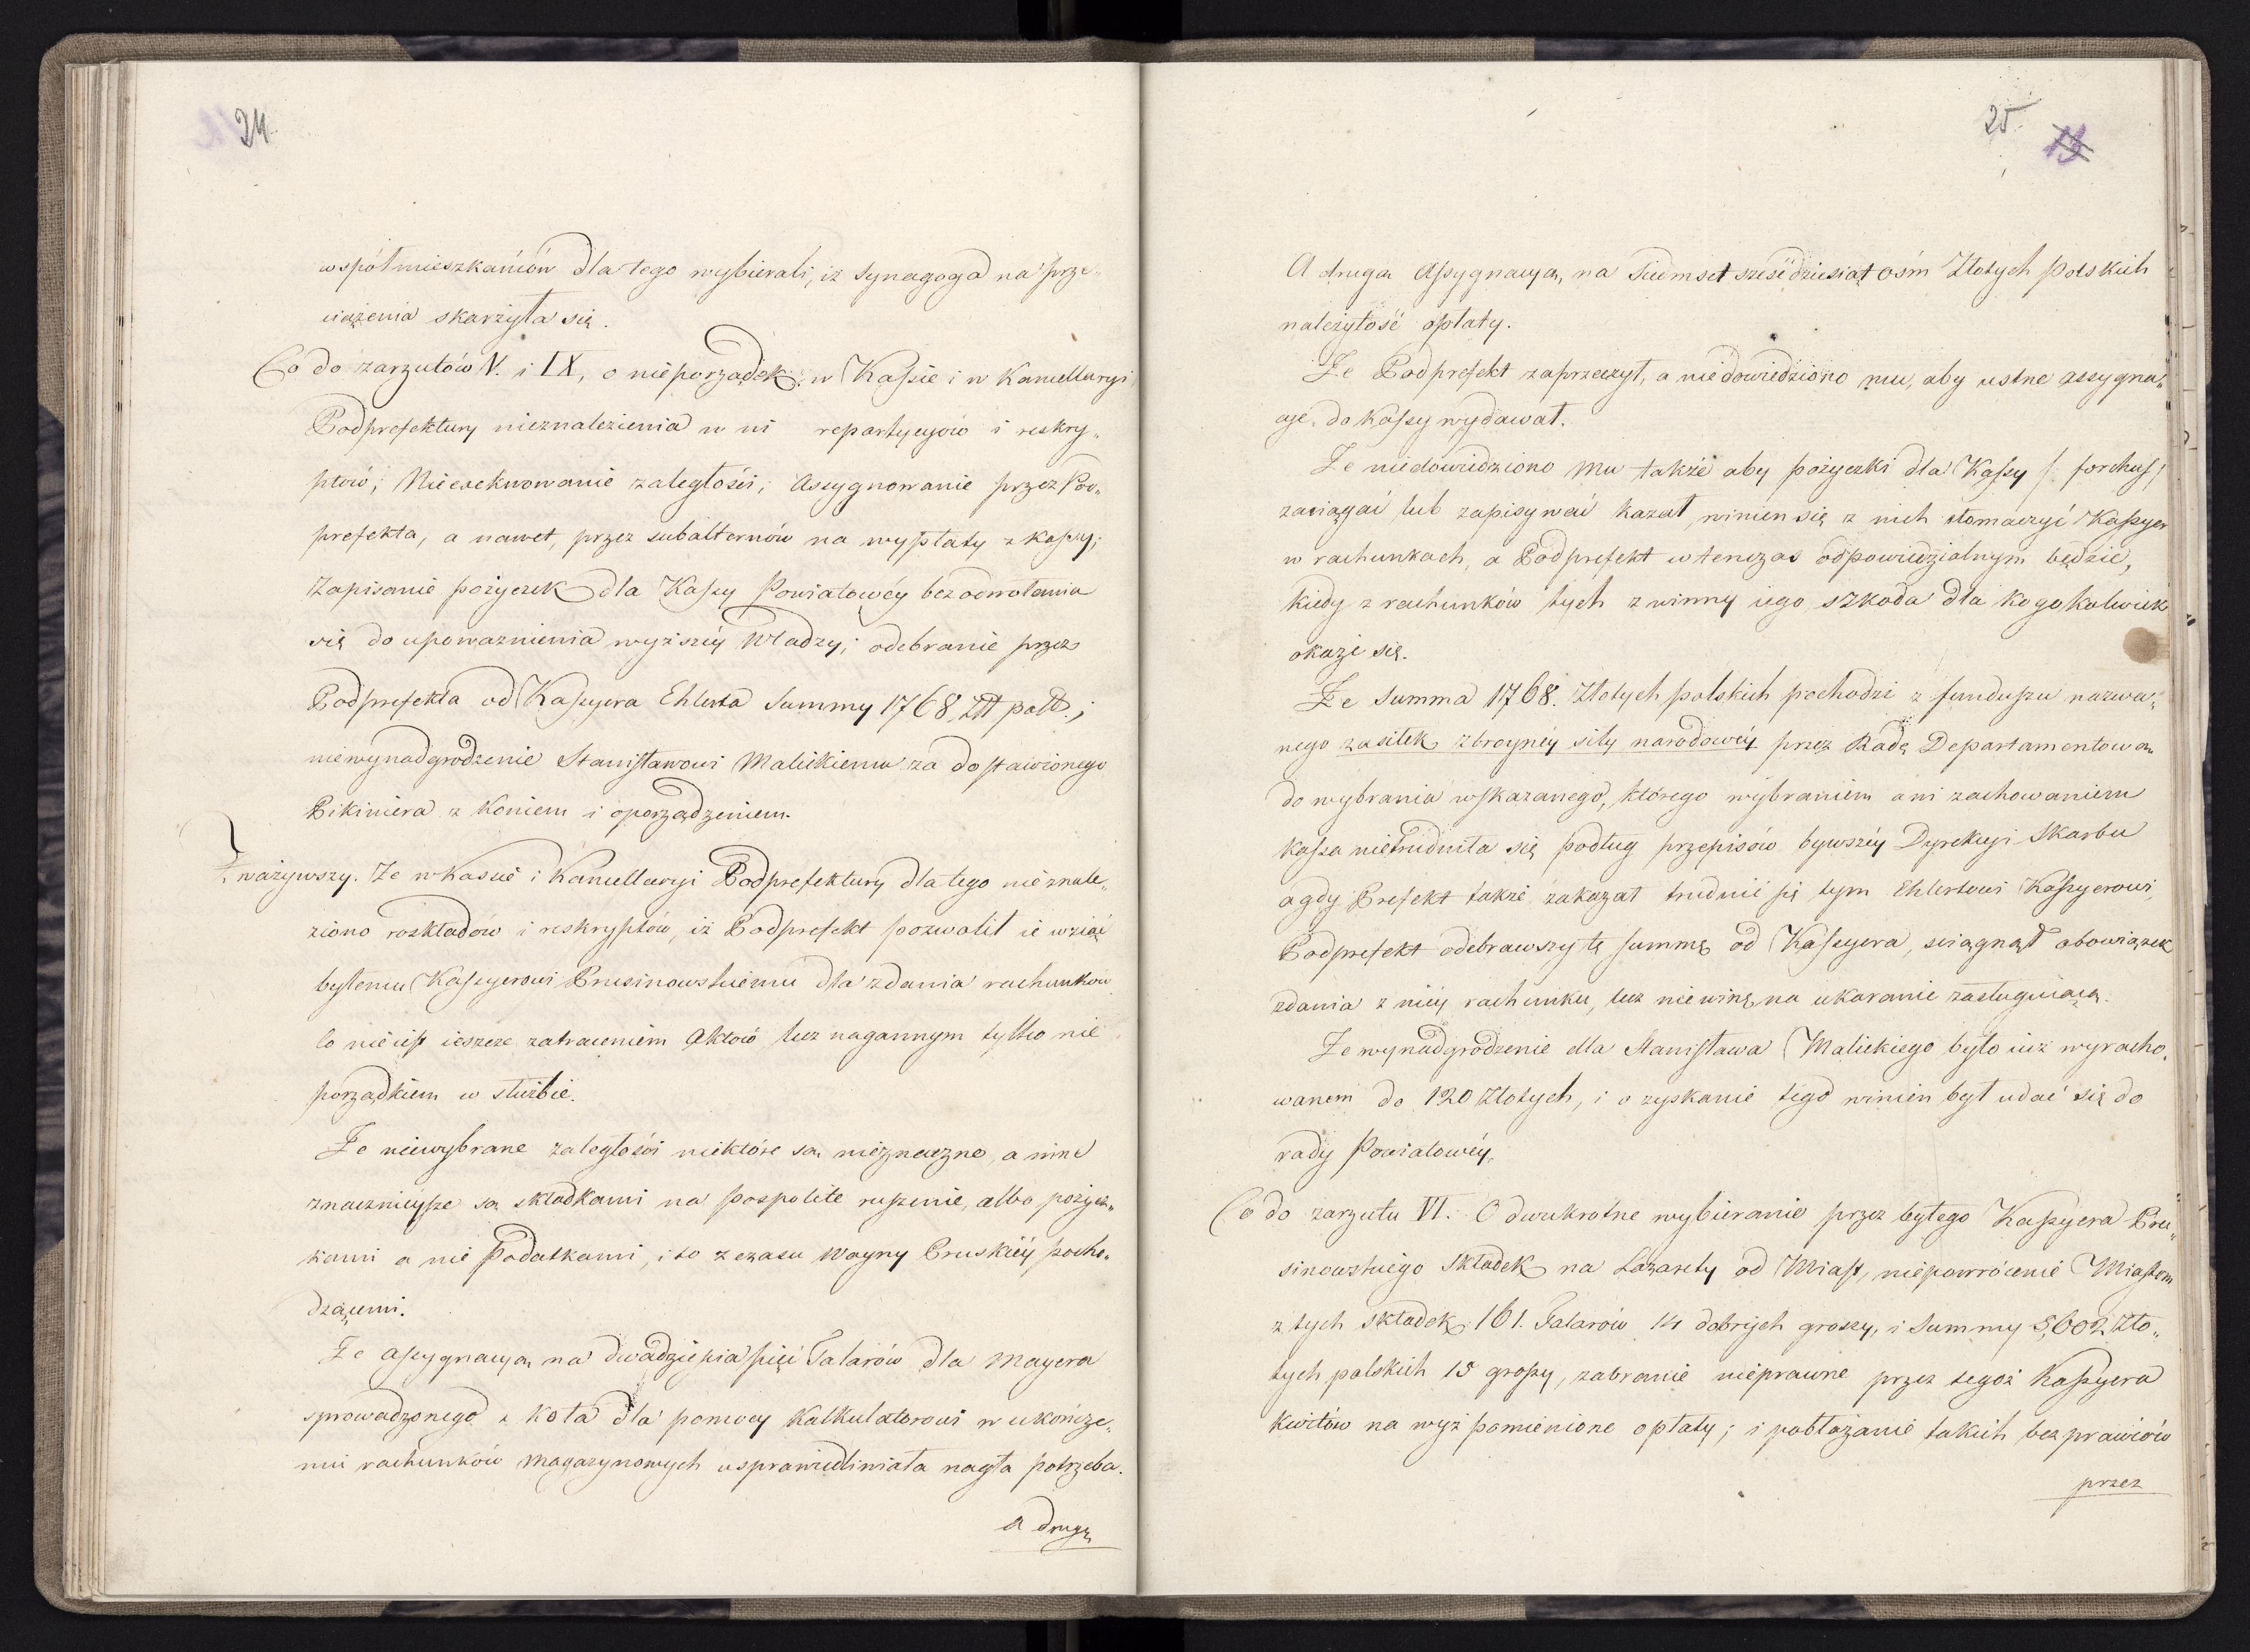 24
współmieszkańców dla tego wybierali, iż Synagoga na prze„
ciążenia skarzyła się.
Co do zarzutów V. i IX, o nieporządek w Kassie i w Kancellaryi
Podprefektury nieznalezienia w ni repartycyów i reskry„
ptów; Nieexekwowanie zaległości; Assygnowanie przez Pod„
prefekta, a nawet, przez subalternów na wypłaty z kassy;
Zapisanie pożyczek dla Kassy Powiatowéy bez odwołania
się do upoważnienia wyższéy Władzy; odebranie przez
Podprefekta od Kassyera Ehlerta Summy 1768 Złł poll.;
niewynadgrodzenie Stanisławowi Malickiemu za dostawionego
Pikiniera z Koniem i oporządzeniem.
Zważywszy. Ze w Kassie i Kancellaryi Podprefektury dla tego nie znale„
ziono rozkładów i reskryptów, iż Podprefekt pozwolił ie wziąć
byłemu Kassyerowi Prusinowskiemu dla zdania rachunków
co nie iest ieszcze zatraceniem Aktów lecz nagannym tylko nie
porządkiem w służbie.
Ze niewybrane zaległości niektóre są nieznaczne, a inne
znacznieysze są składkami na pospolite ruszenie, albo pożycz„
kami a nie Podatkami, i to z czasu Woyny Pruskiéy pocho„
dzącemi.
Ze assygnacya na dwadzieścia pięć Talarów dla Mayera
sprowadzonego z Koła dla pomocy Kalkulatorowi w ukończe„
niu rachunków Magazynowych usprawiedliwiała nagła potrzeba.
A druga
25.
13
A druga Assygnacya, na Siedmset sześćdziesiąt ośm Złotych Polskich
należytość opłaty.
Ze Podprefekt zaprzeczył, a niedowiedziono mu, aby ustne assygna„
cye do Kassy wydawał.
Ze niedowiedziono mu także aby pożyczki dla Kassy /: forchus /
zaciągać lub zapisywać kazał, winien się z nich tłomaczyć Kassyer
w rachunkach, a Podprefekt w tenczas odpowiedzialnym będzie,
kiedy z rachunków tych z winny iego szkoda dla kogokolwiek
okaże się.
Ze Summa 1768. Złotych polskich pochodzi z funduszu nazwa„
nego zasiłek zbroyney siły narodowéy przez Radę Departamentową
do wybrania wskazanego, którego wybraniem ani zachowaniem
kassa nietrudniła się podług przepisów bywszéy Dyrekcyi Skarbu
a gdy Prefekt także zakazał trudnić się tym Ehlertowi Kassyerowi,
Podprefekt odebrawszy tę summę od Kassyera, ściągnął obowiązek
zdania z niéy rachunku, lecz nie winę na ukaranie zasługuiącą.
Ze wynadgrodzenie dla Stanisława Malickiego było iuż wyracho„
wanem do 120 Złotych, i o zyskanie tego winien był udać się do
rady Powiatowéy.
Co do zarzutu VI. O dwukrotne wybieranie przez byłego Kassyera Pru„
sinowskiego Składek na Lazarety od Miast, niepowrócenie Miastom
z tych składek 161. Talarów 14 dobrych groszy, i Summy 5,602 Zło„
tych polskich 15 groszy, zabranie nieprawne przez tegoż Kassyera
kwitów na wyż pomienione opłaty; i pobłażanie takich bezprawiów
przez